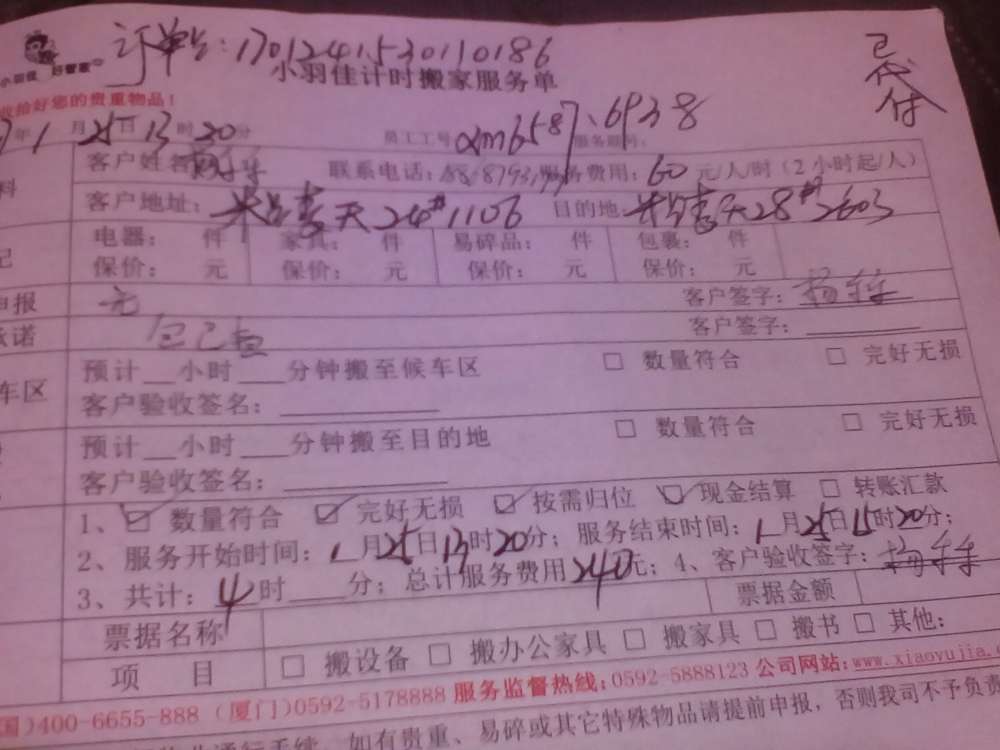 订单号：170124153011018 6
小羽佳 好管家
小羽佳计时搬家服务单
已代付
收拾好您的贵重物品！
年1月25日13时20分 员工工号 xm6587、6938 服务顺号：
料 客户姓名： 联系电话： 服务费用：60元/人/时（2小时起/人）
客户地址： 春天24#1106 目的地： 春天28#2603
记 电器： 件 家具： 件 易碎品： 件 包裹： 件
保价： 元 保价： 元 保价： 元 保价： 元
申报 无 客户签字：
承诺 客户签字：
车区 预计__小时___分钟搬至候车区 □ 数量符合 □ 完好无损
客户验收签名：
预计__小时___分钟搬至目的地 □ 数量符合 □ 完好无损
客户验收签名：
1、☑ 数量符合 ☑ 完好无损 ☑ 按需归位 ☑ 现金结算 □ 转账汇款
2、服务开始时间：1月25日13时20分；服务结束时间：1月25日15时20分；
3、共计：4时____分；总计服务费用240元；4、客户验收签字：
票据名称 票据金额
项 目 □ 搬设备 □ 搬办公家具 □ 搬家具 □ 搬书 □ 其他：
国)400-6655-888 (厦门)0592-5178888 服务监督热线：0592-5888123 公司网站：www.xiaoyujia.c
如有贵重、易碎或其它特殊物品请提前申报，否则我司不予负责